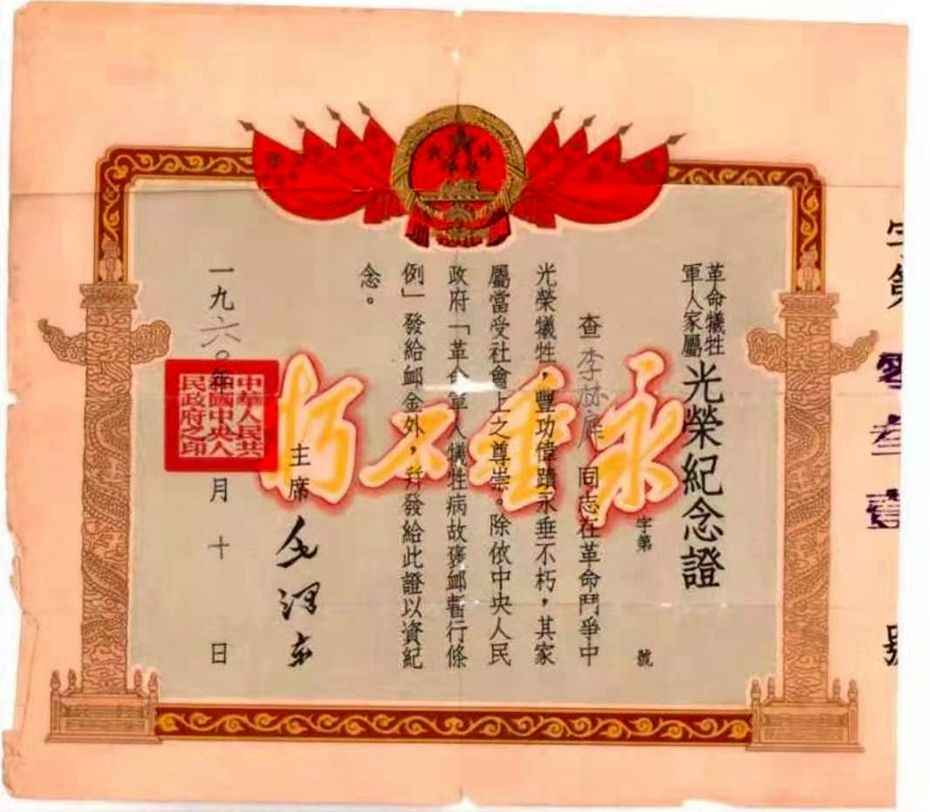 字第零叁壹號
革命犧牲
軍人家屬
光榮紀念證
字第 號
查李 同志在革命鬥爭中
光榮犧牲，豐功偉蹟永垂不朽，其家
屬當受社會上之尊崇。除依中央人民
政府「革命軍人犧牲病故褒卹暫行條
例」發給卹金外，幷發給此證以資紀
念。
永垂不朽
主席 毛澤东
一九六〇年 月十日
中華人民共
和國中央人
民政府之印